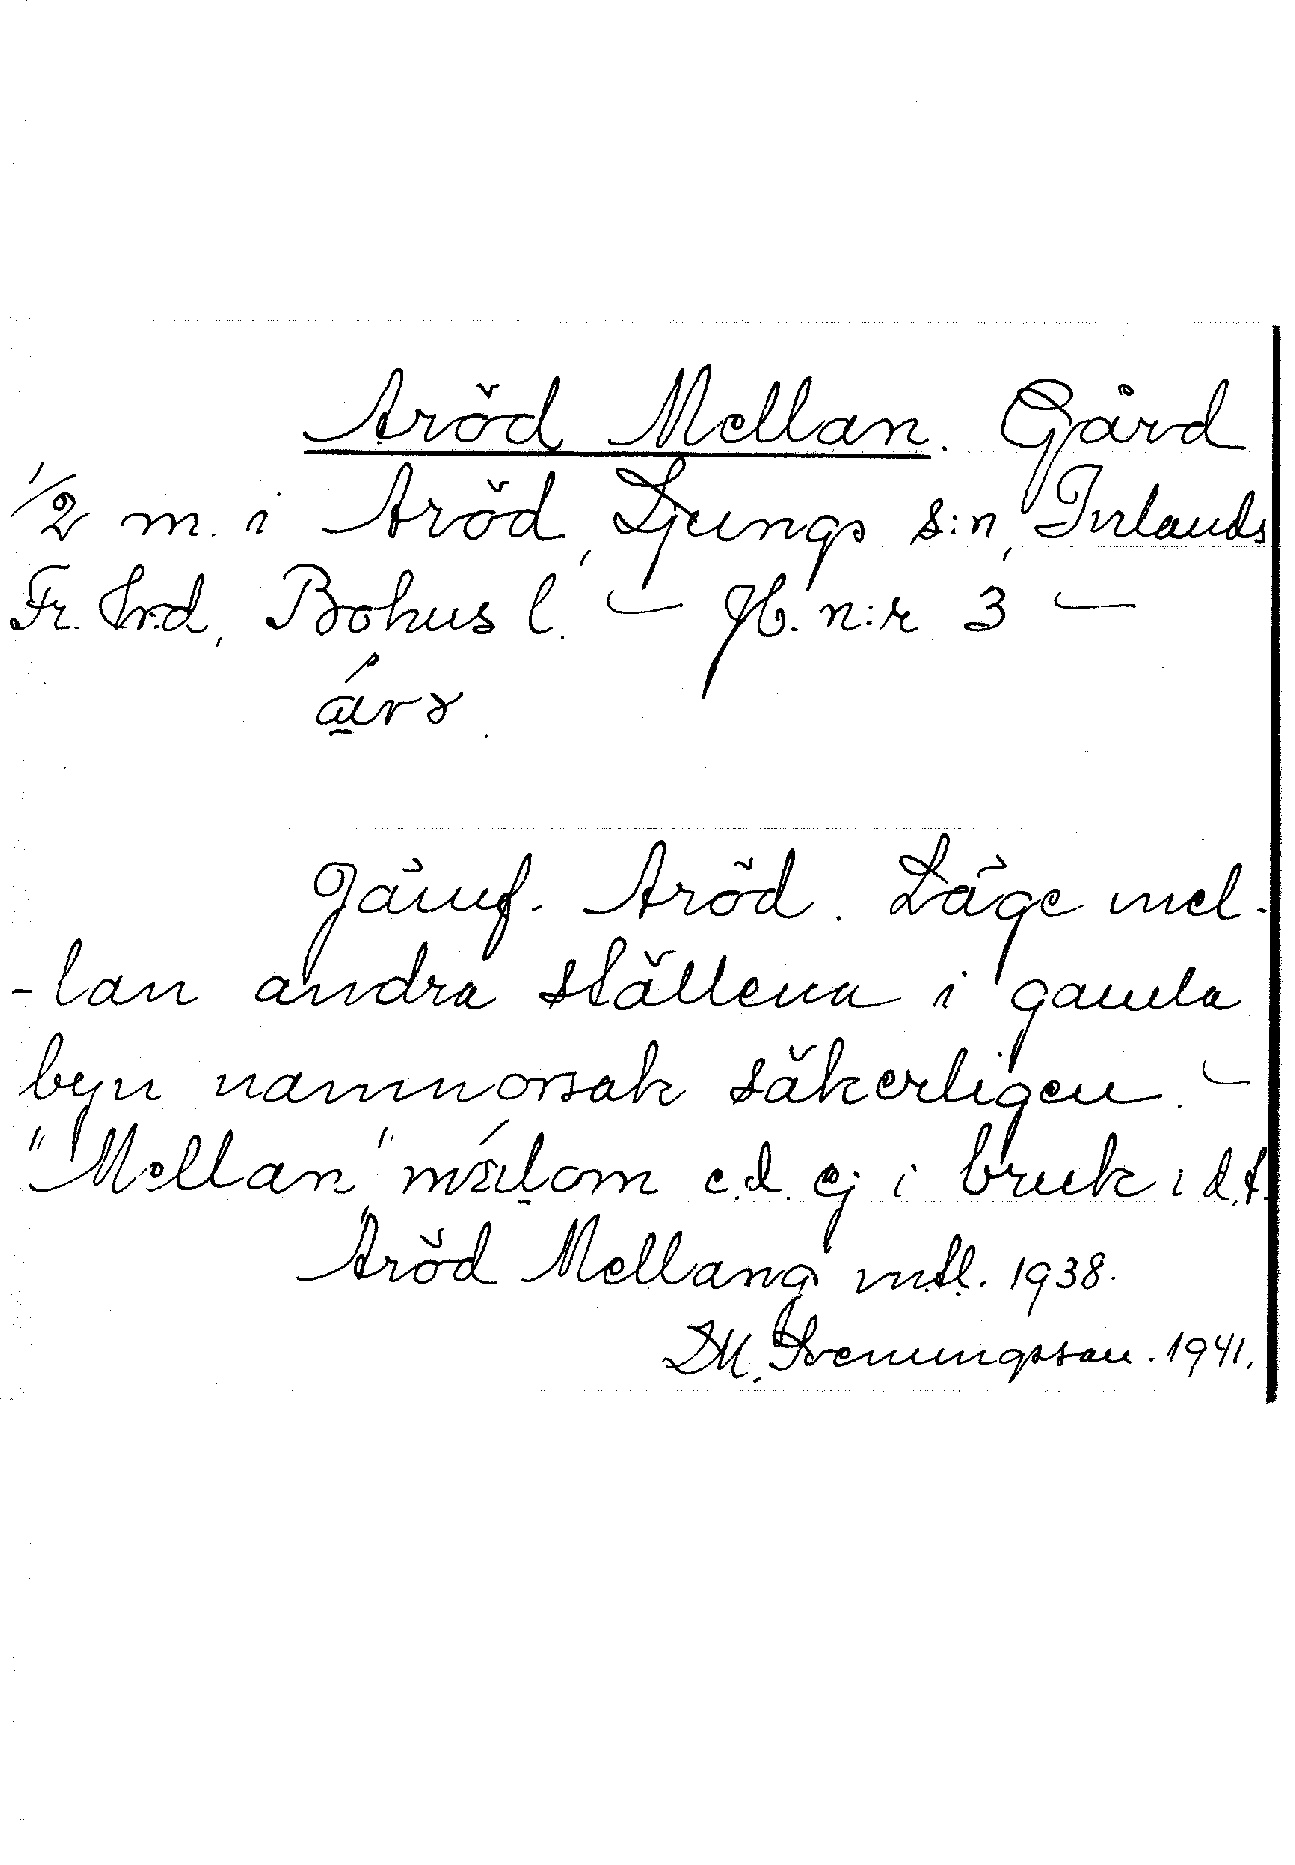 Aröd Mellan. Gård
1/2 m. i Aröd, Ljungs s:n, Inlands
Fr. hrd, Bohus l. — Jb. n:r 3 —
Jämf. Aröd. Läge mel-
-lan andra ställena i gamla
byn namnorsak säkerligen. —
"Mellan" mslom e.d. ej i bruk i d.t.
Aröd Mellang mtl. 1938.
D.M. Svenungsson. 1941.